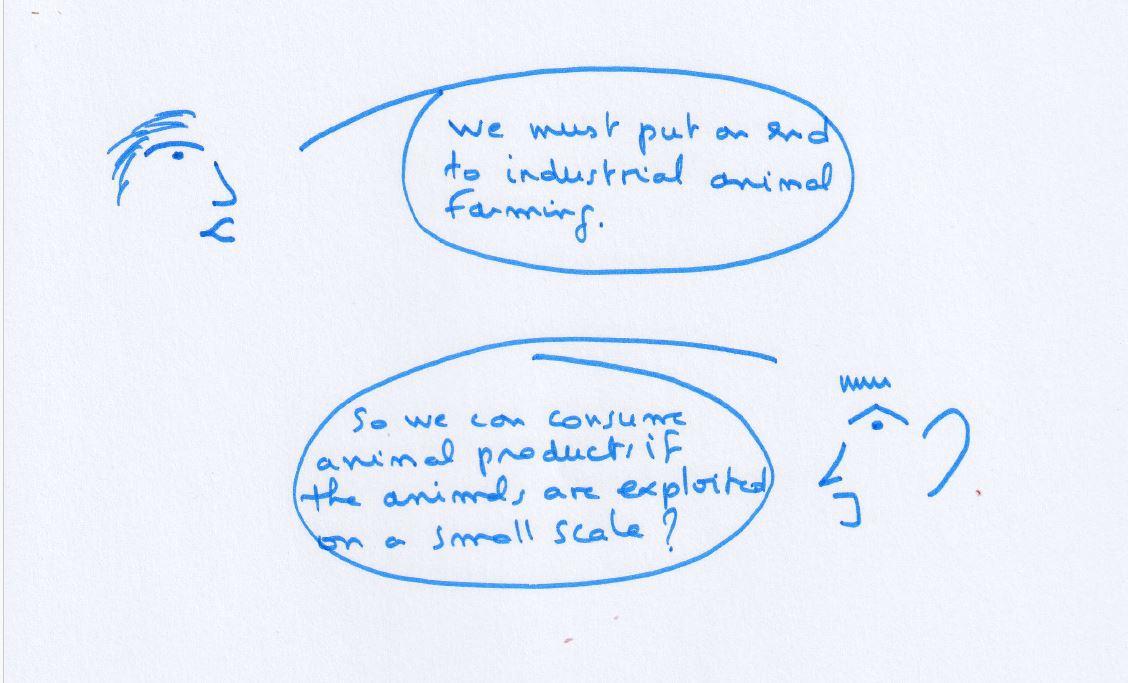 We must put an end
to industrial animal
farming.
So we can consume
animal products if
the animals are exploited
on a small scale?